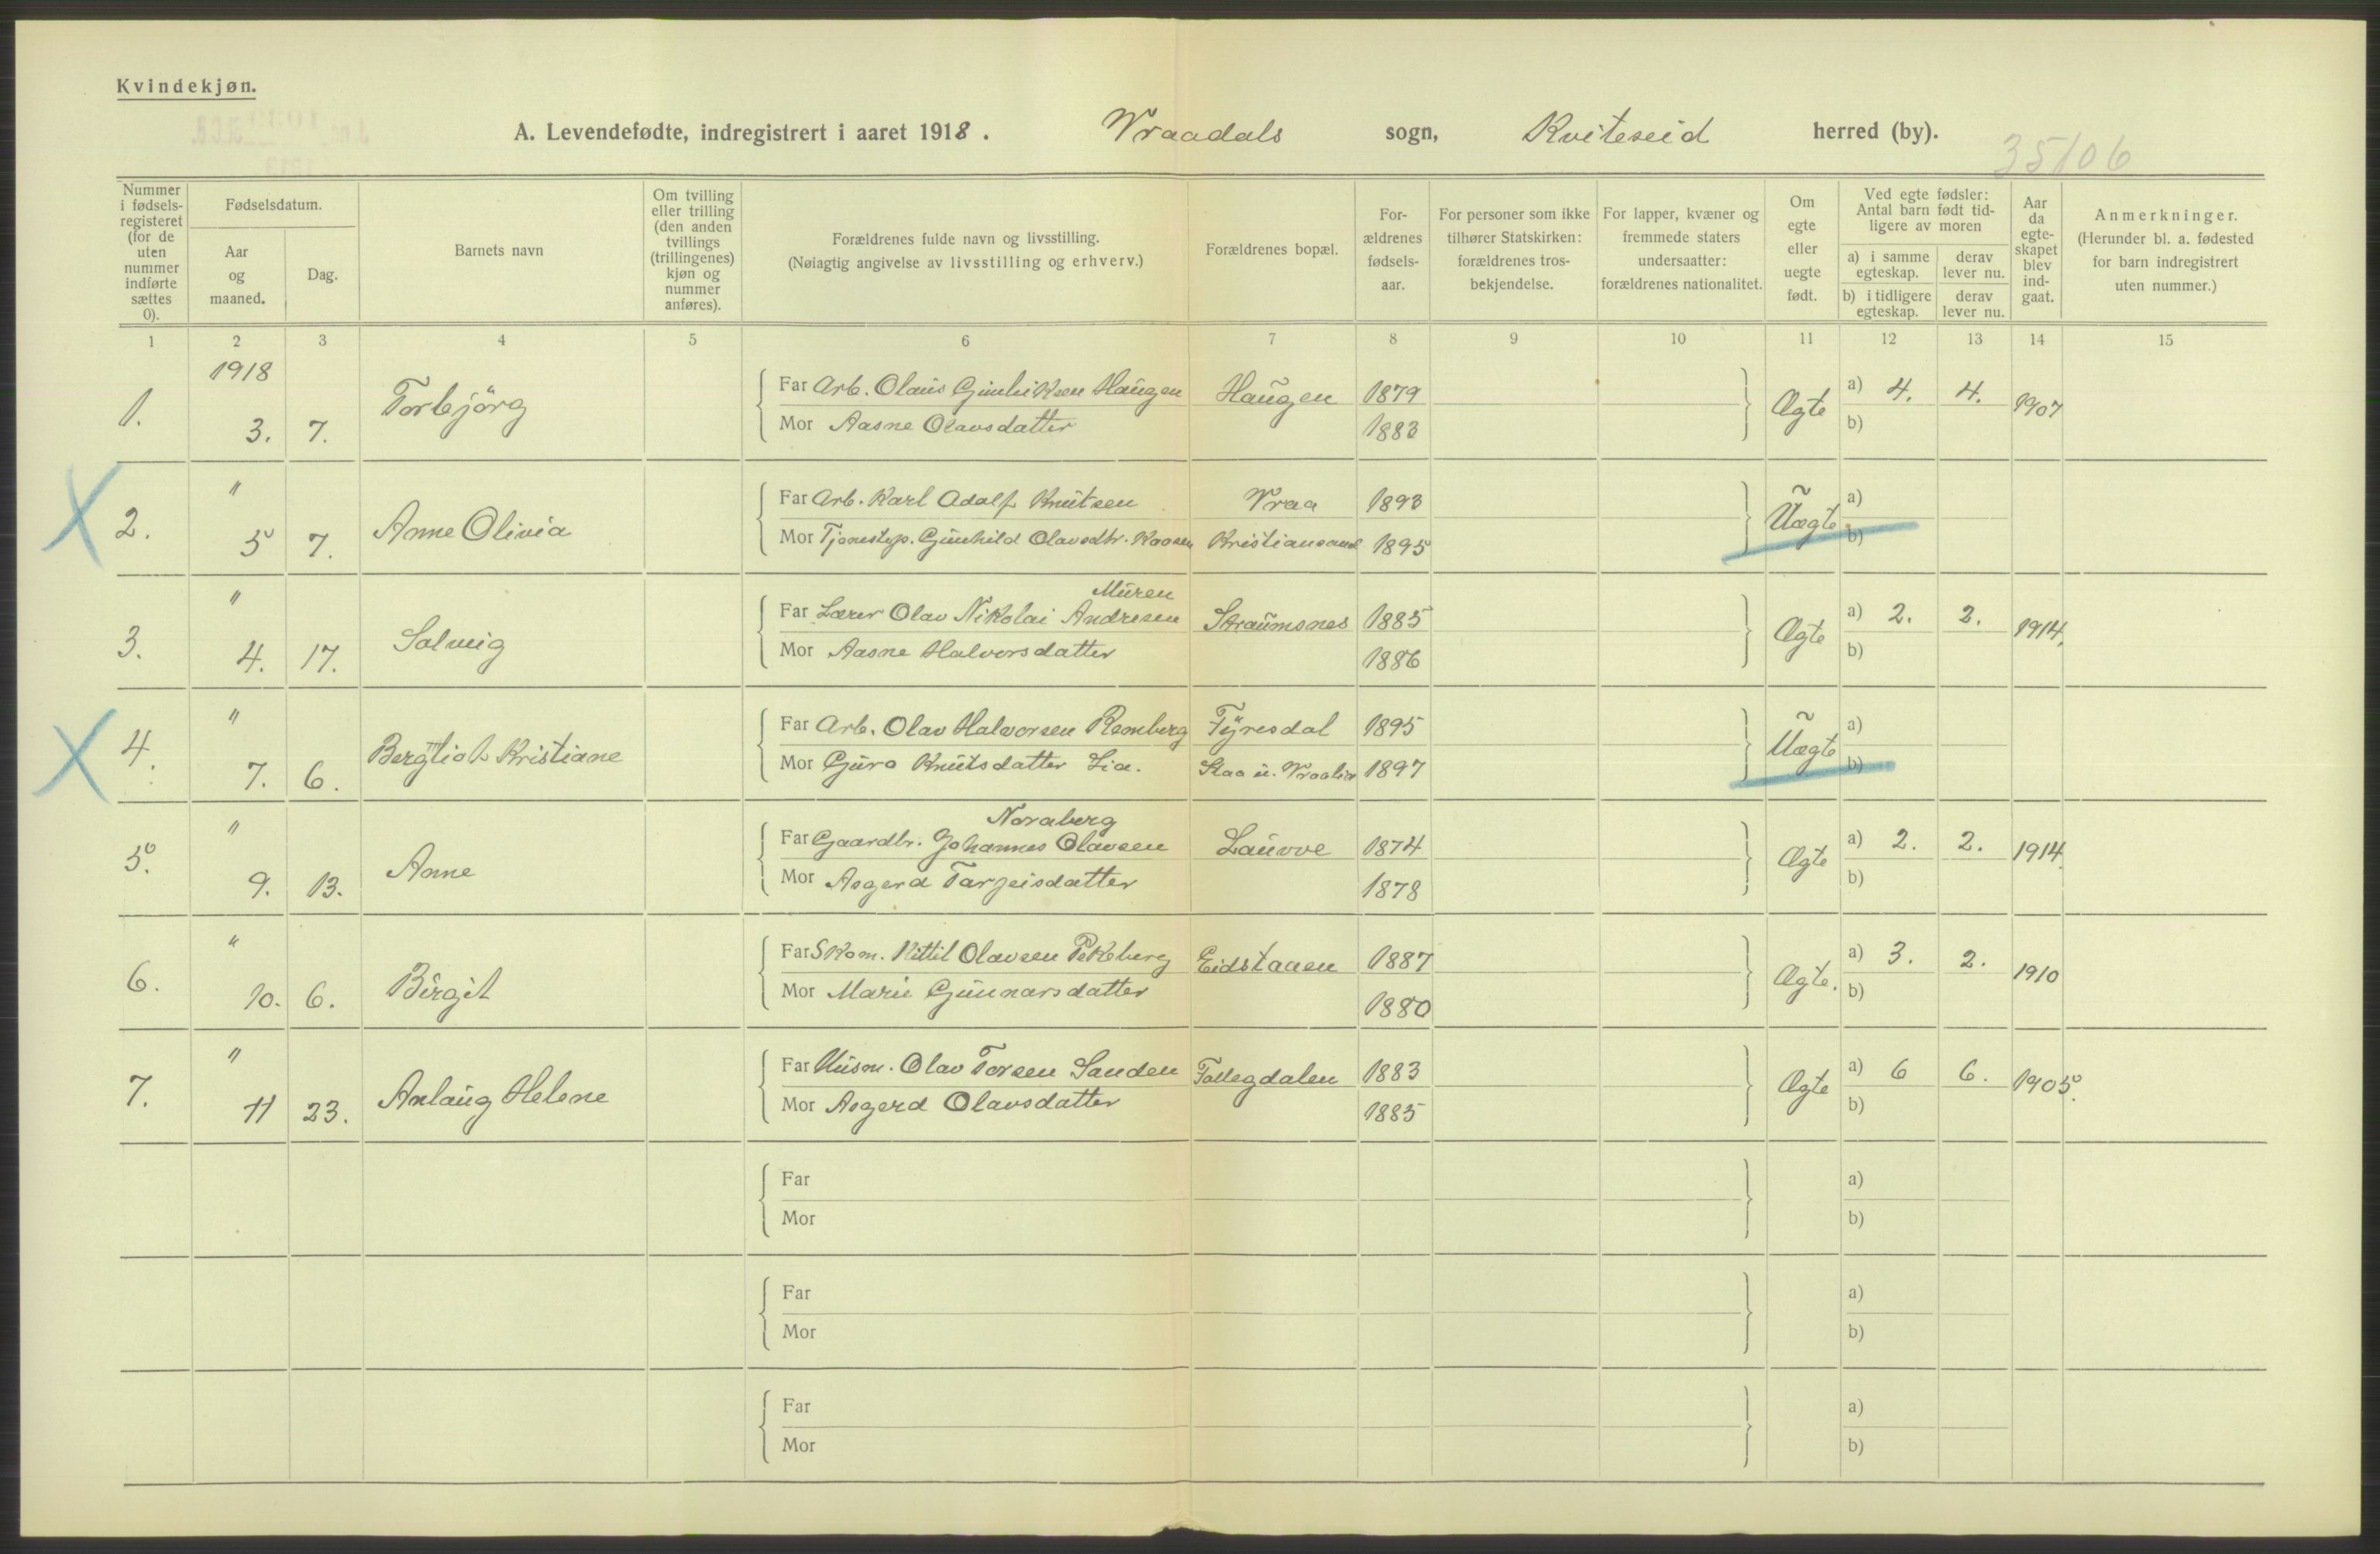 Kvindekjøn.
A. Levendefødte, indregistrert i aaret 1918. Vraadals sogn, Kviteseid herred (by).
35106
Nummer i fødsels-registeret (for de uten nummer indførte sættes 0).
Fødselsdatum.
Aar og maaned.
Dag.
Barnets navn
Om tvilling eller trilling (den anden tvillings (trillingenes) kjøn og nummer anføres).
Forældrenes fulde navn og livsstilling.
(Nøiagtig angivelse av livsstilling og erhverv.)
Forældrenes bopæl.
For-ældrenes fødsels-aar.
For personer som ikke tilhører Statskirken: forældrenes tros-bekjendelse.
For lapper, kvæner og fremmede staters undersaatter: forældrenes nationalitet.
Om egte eller uegte født.
Ved egte fødsler: Antal barn født tid-ligere av moren
a) i samme egteskap.
derav lever nu.
b) i tidligere egteskap.
derav lever nu.
Aar da egte-skapet blev ind-gaat.
Anmerkninger.
(Herunder bl. a. fødested for barn indregistrert uten nummer.)
1 2 3 4 5 6 7 8 9 10 11 12 13 14 15
1918
1. 3. 7. Torbjörg
Far Arb. Olaus Gunleiksen Haugen Haugen 1879
Mor Aasne Olavsdatter 1883
Ægte a) 4. 4. 1907
b)
"
2. 5 7. Anne Olivia
Far Arb. Karl Adolf Knutsen Vraa 1893
Mor Tjenestep. Gunhild Olavsdtr. Kristiansand 1895
Uægte a)
b)
"
3. 4. 17. Solveig
Muren
Far Lærer Olav Nikolai Andresen Straumsnes 1885
Mor Aasne Halvorsdatter 1886
Ægte a) 2. 2. 1914.
b)
"
4. 7. 6. Bergliot Kristiane
Far Arb. Olav Halvorsen Remberg Tyresdal 1895
Mor Guro Knutsdatter Lia. 1897
Uægte a)
b)
"
5. 9. 13. Anne
Noraberg
Far Gaardbr. Johannes Olavsen Lauvve 1874
Mor Asgerd Targeisdatter 1878
Ægte a) 2. 2. 1914
b)
"
6. 10. 6. Birgit
Far Skom. Kittil Olavsen Eidstaaen 1887
Mor Marie Gunnarsdatter 1880
Ægte. a) 3. 2. 1910
b)
"
7. 11 23. Anlaug Helene
Far Husm. Olav Torsen Sanden 1883
Mor Asgerd Olavsdatter 1885
Ægte a) 6 6. 1905.
b)
Far a)
Mor b)
Far a)
Mor b)
Far a)
Mor b)